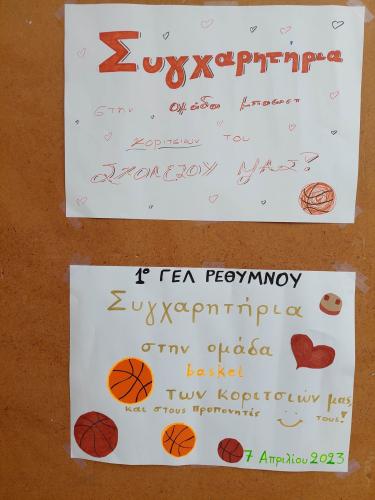 Συγχαρητήρια
στην ομάδα μπάσκετ
κοριτσιών του
ΣΧΟΛΕΙΟΥ ΜΑΣ!
1ο ΓΕΛ ΡΕΘΥΜΝΟΥ
Συγχαρητήρια
στην ομάδα
basket
των κοριτσιών μας
και στους προπονητές τους!
7 Απριλίου 2023